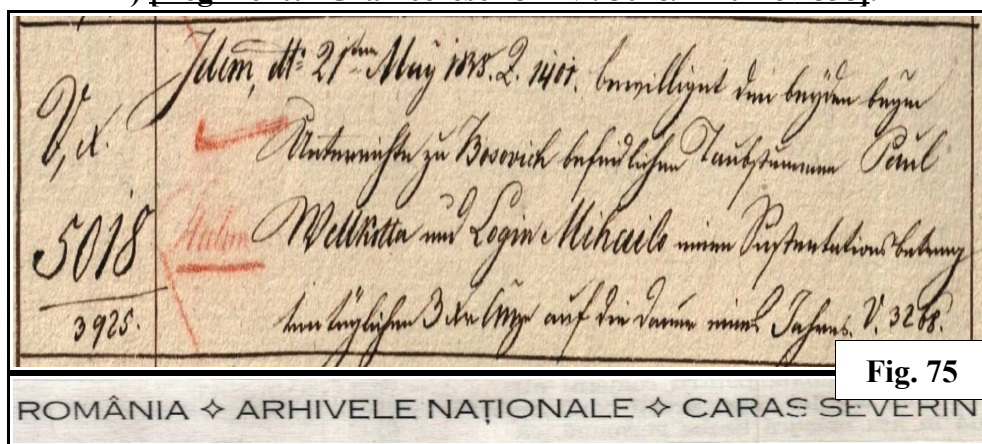 Idem, dtt: 21ten May 1838. Z. 1401. bewilligt den beyden beym
V, d.
Unterrichte zu Bosovich befindlichen Taubstummen Paul
5018
Wellkotta und Login Mihailo einen Sustentationsbetrag
3925.
von täglichen 3 xr CMze auf die Dauer eines Jahres. V. 3268.
Fig. 75
ROMÂNIA ✧ ARHIVELE NAȚIONALE ✧ CARAȘ SEVERIN